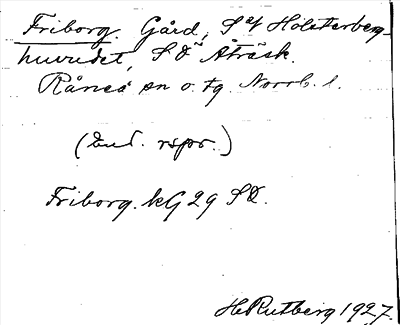 Friborg. Gård, S ut Holsterberg-
huvudet, S Ö Åträsk.
Råneå sn o. tg. Norrb. l.
(End. rspr.)
Friborg. kG 29 SÖ.
H Rutberg 1927.